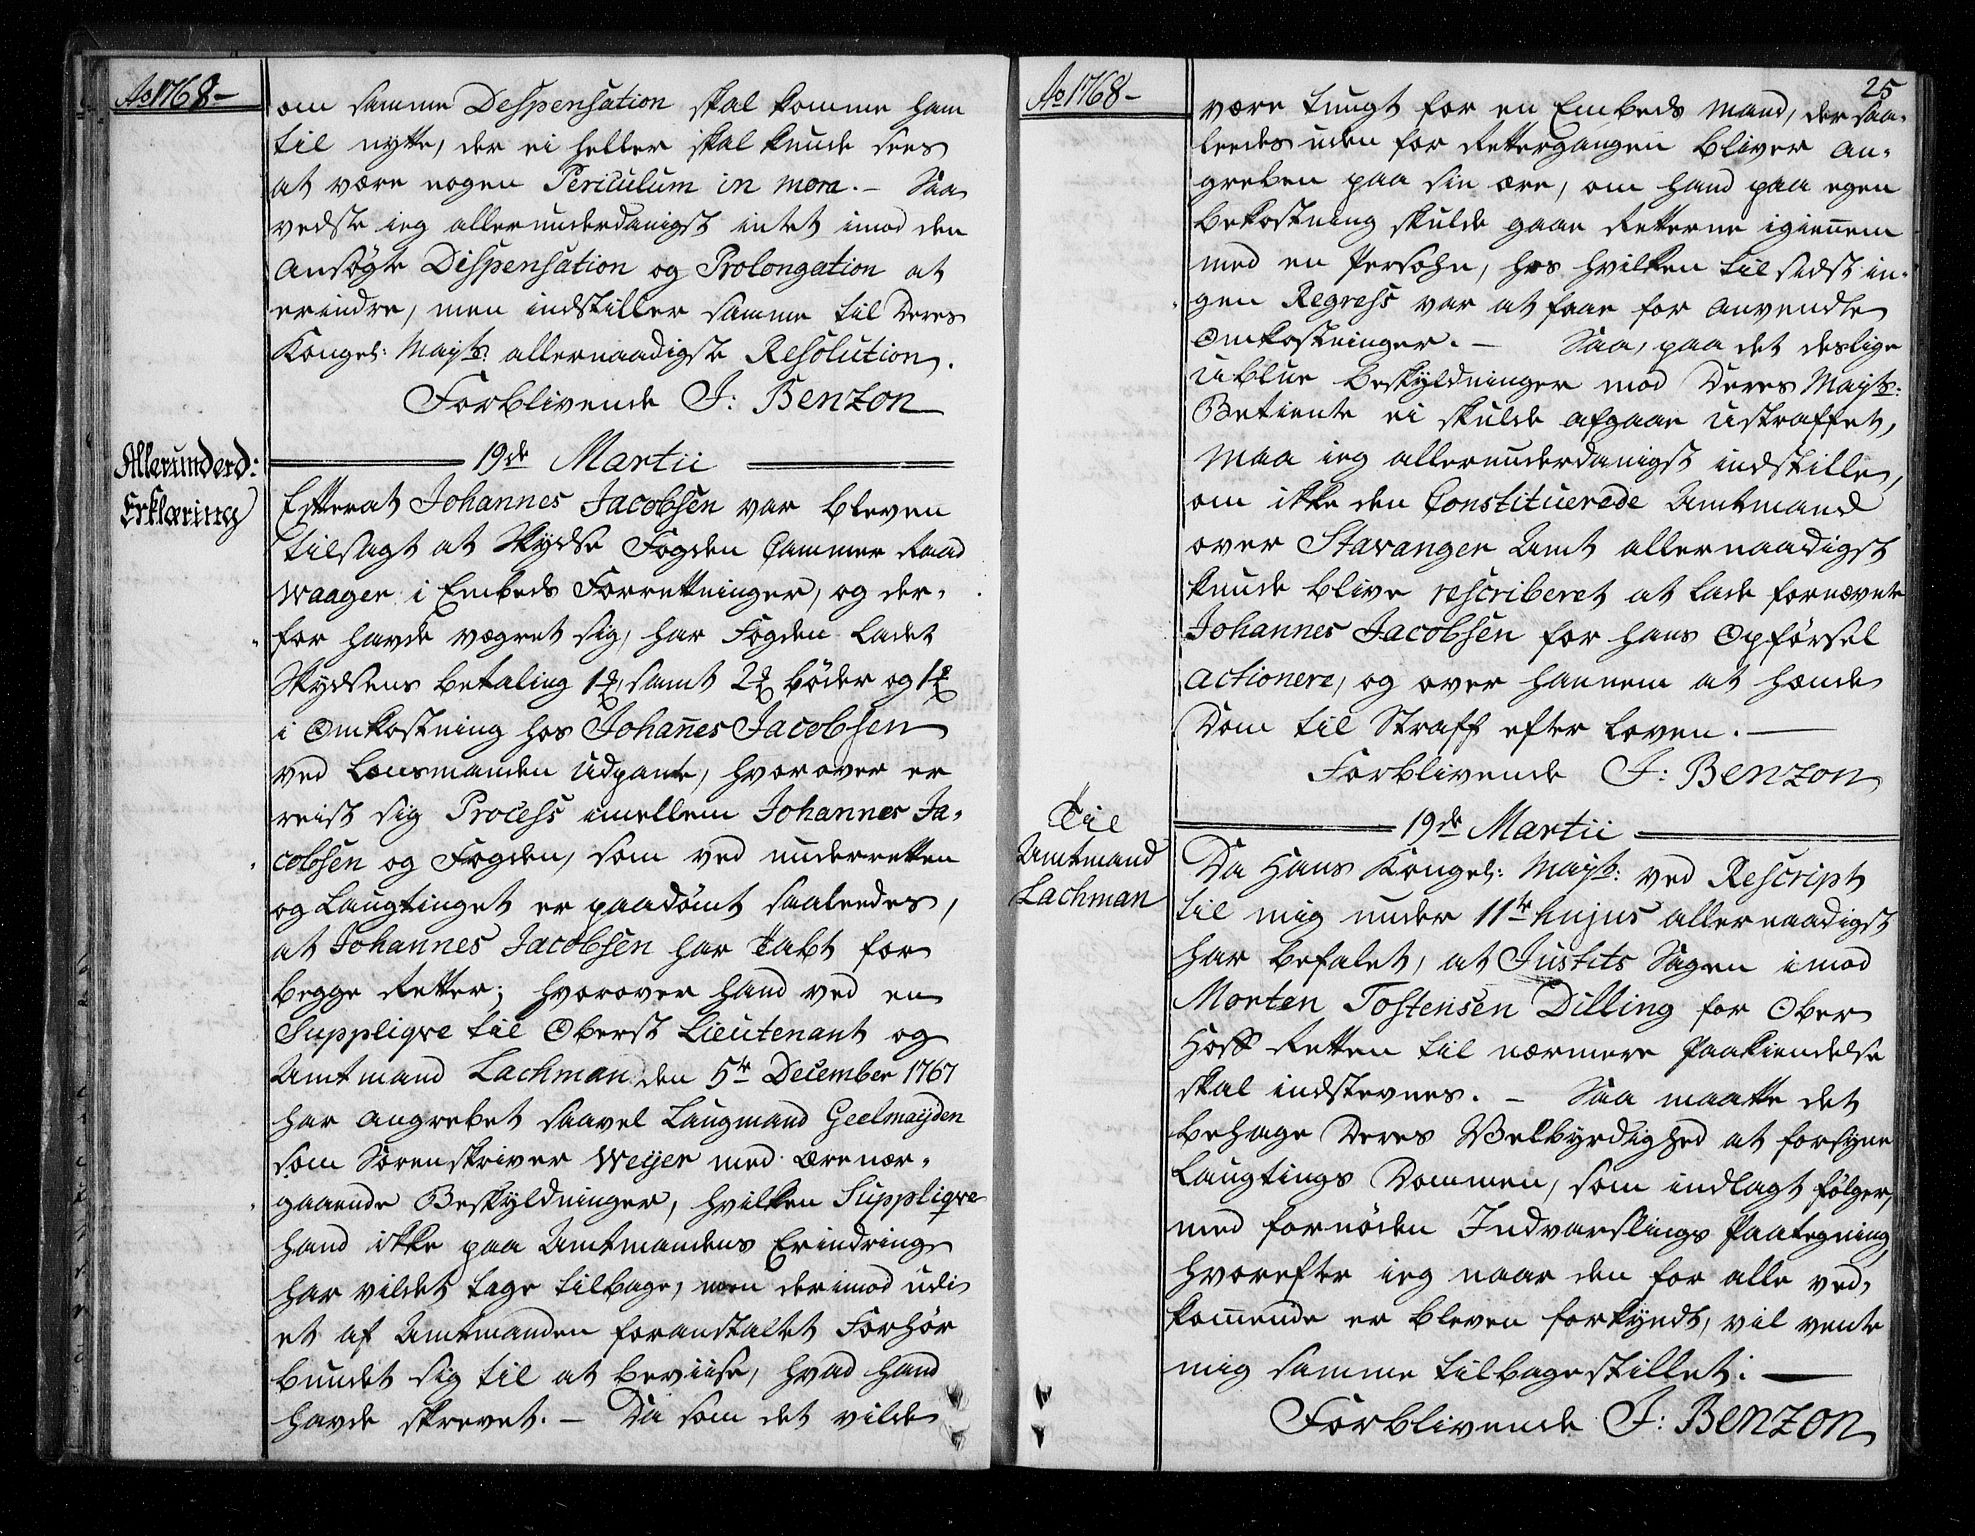 Ao 1768-
om samme Despensation skal komme ham
til nytte, der ei heller skal kunde sees
at være nogen Periculum in mora. - Saa
vedste ieg allerunderdanigst intet imod den
ansøgte Dispensation og Prolongation at
erindre, men indstiller samme til Deres
Kongel: Mayts: allernaadigste Resolution.
Forblivende J: Benzon
19de Martii
Allerunderd:
Erklæring
Efterat Johannes Jacobsen var bleven
tilsagt at Skydse Fogden Cammer Raad
Waager i Embeds Forretninger, og der-
for havde vægret sig, har Fogden ladet
Skydsens betaling 1 rd, samt 2 rd bøder og 1 rd
i Omkostning hos Johan̄es Jacobsen
ved Lensmanden udpante, hvorover er
reist sig Process imellem Johannes Ja-
cobsen og Fogden, som ved underretten
og Laugtinget er paadømt saaleedes,
at Johannes Jacobsen har tabt for
begge Retter; hvorover hand ved en
Suppliqve til Oberst Lieutenant og
Amtmand Lachman den 5te December 1767
har angrebet saavel Laugmand Geelmuyden
som Sorenskriver Weyer med ærenær-
gaaende Beskyldninger, hvilken Suppliqve
hand ikke paa Amtmandens Erindring
har vildet tage tilbage, men derimod udi
et af Amtmanden foranstaltet Forhør
bundet sig til at beviise, hvad hand
havde skrevet. - Da som det vilde
Ao 1768-
25
være tungt for en Embeds Mand, der saa-
leedes uden for Rettergangen bliver an-
greben paa sin ære, om hand paa egen
bekostning skulde gaae Retterne igien̄em
med en Persohn, hos hvilken til sidst in-
gen Regress var at faae for anvendte
Omkostninger. - Saa, paa det deslige
ublue beskyldninger mod Deres Mayts:
Betiente ei skulde afgaae ustraffet,
maa ieg allerunderdanigst indstille,
om ikke den Constituerede Amtmand
over Stavanger Amt allernaadigst
kunde blive rescriberet at lade fornævnte
Johannes Jacobsen for hans Opførsel
actionere, og over hannem at hænde
Dom til Straff efter Loven.
Forblivende J: Benzon
19de Martii
Til
Amtmand
Lachman
Da Hans Kongel: Mayts: ved Rescript
til mig under 11te hujus allernaadigst
har befalet, at Justits Sagen imod
Morten Tostensen Dilling for Ober
Hoff Retten til nærmere Paakiendelse
skal indstevnes. - Saa maatte det
behage Deres Velbyrdighed at forsyne
Laugtings Dommen, som indlagt følger,
med fornøden Indvarslings Paategning,
hvorefter ieg naar den for alle ved-
kom̄ende er bleven forkyndt, vil vente
mig samme tilbagestillet.
Forblivende J: Benzon